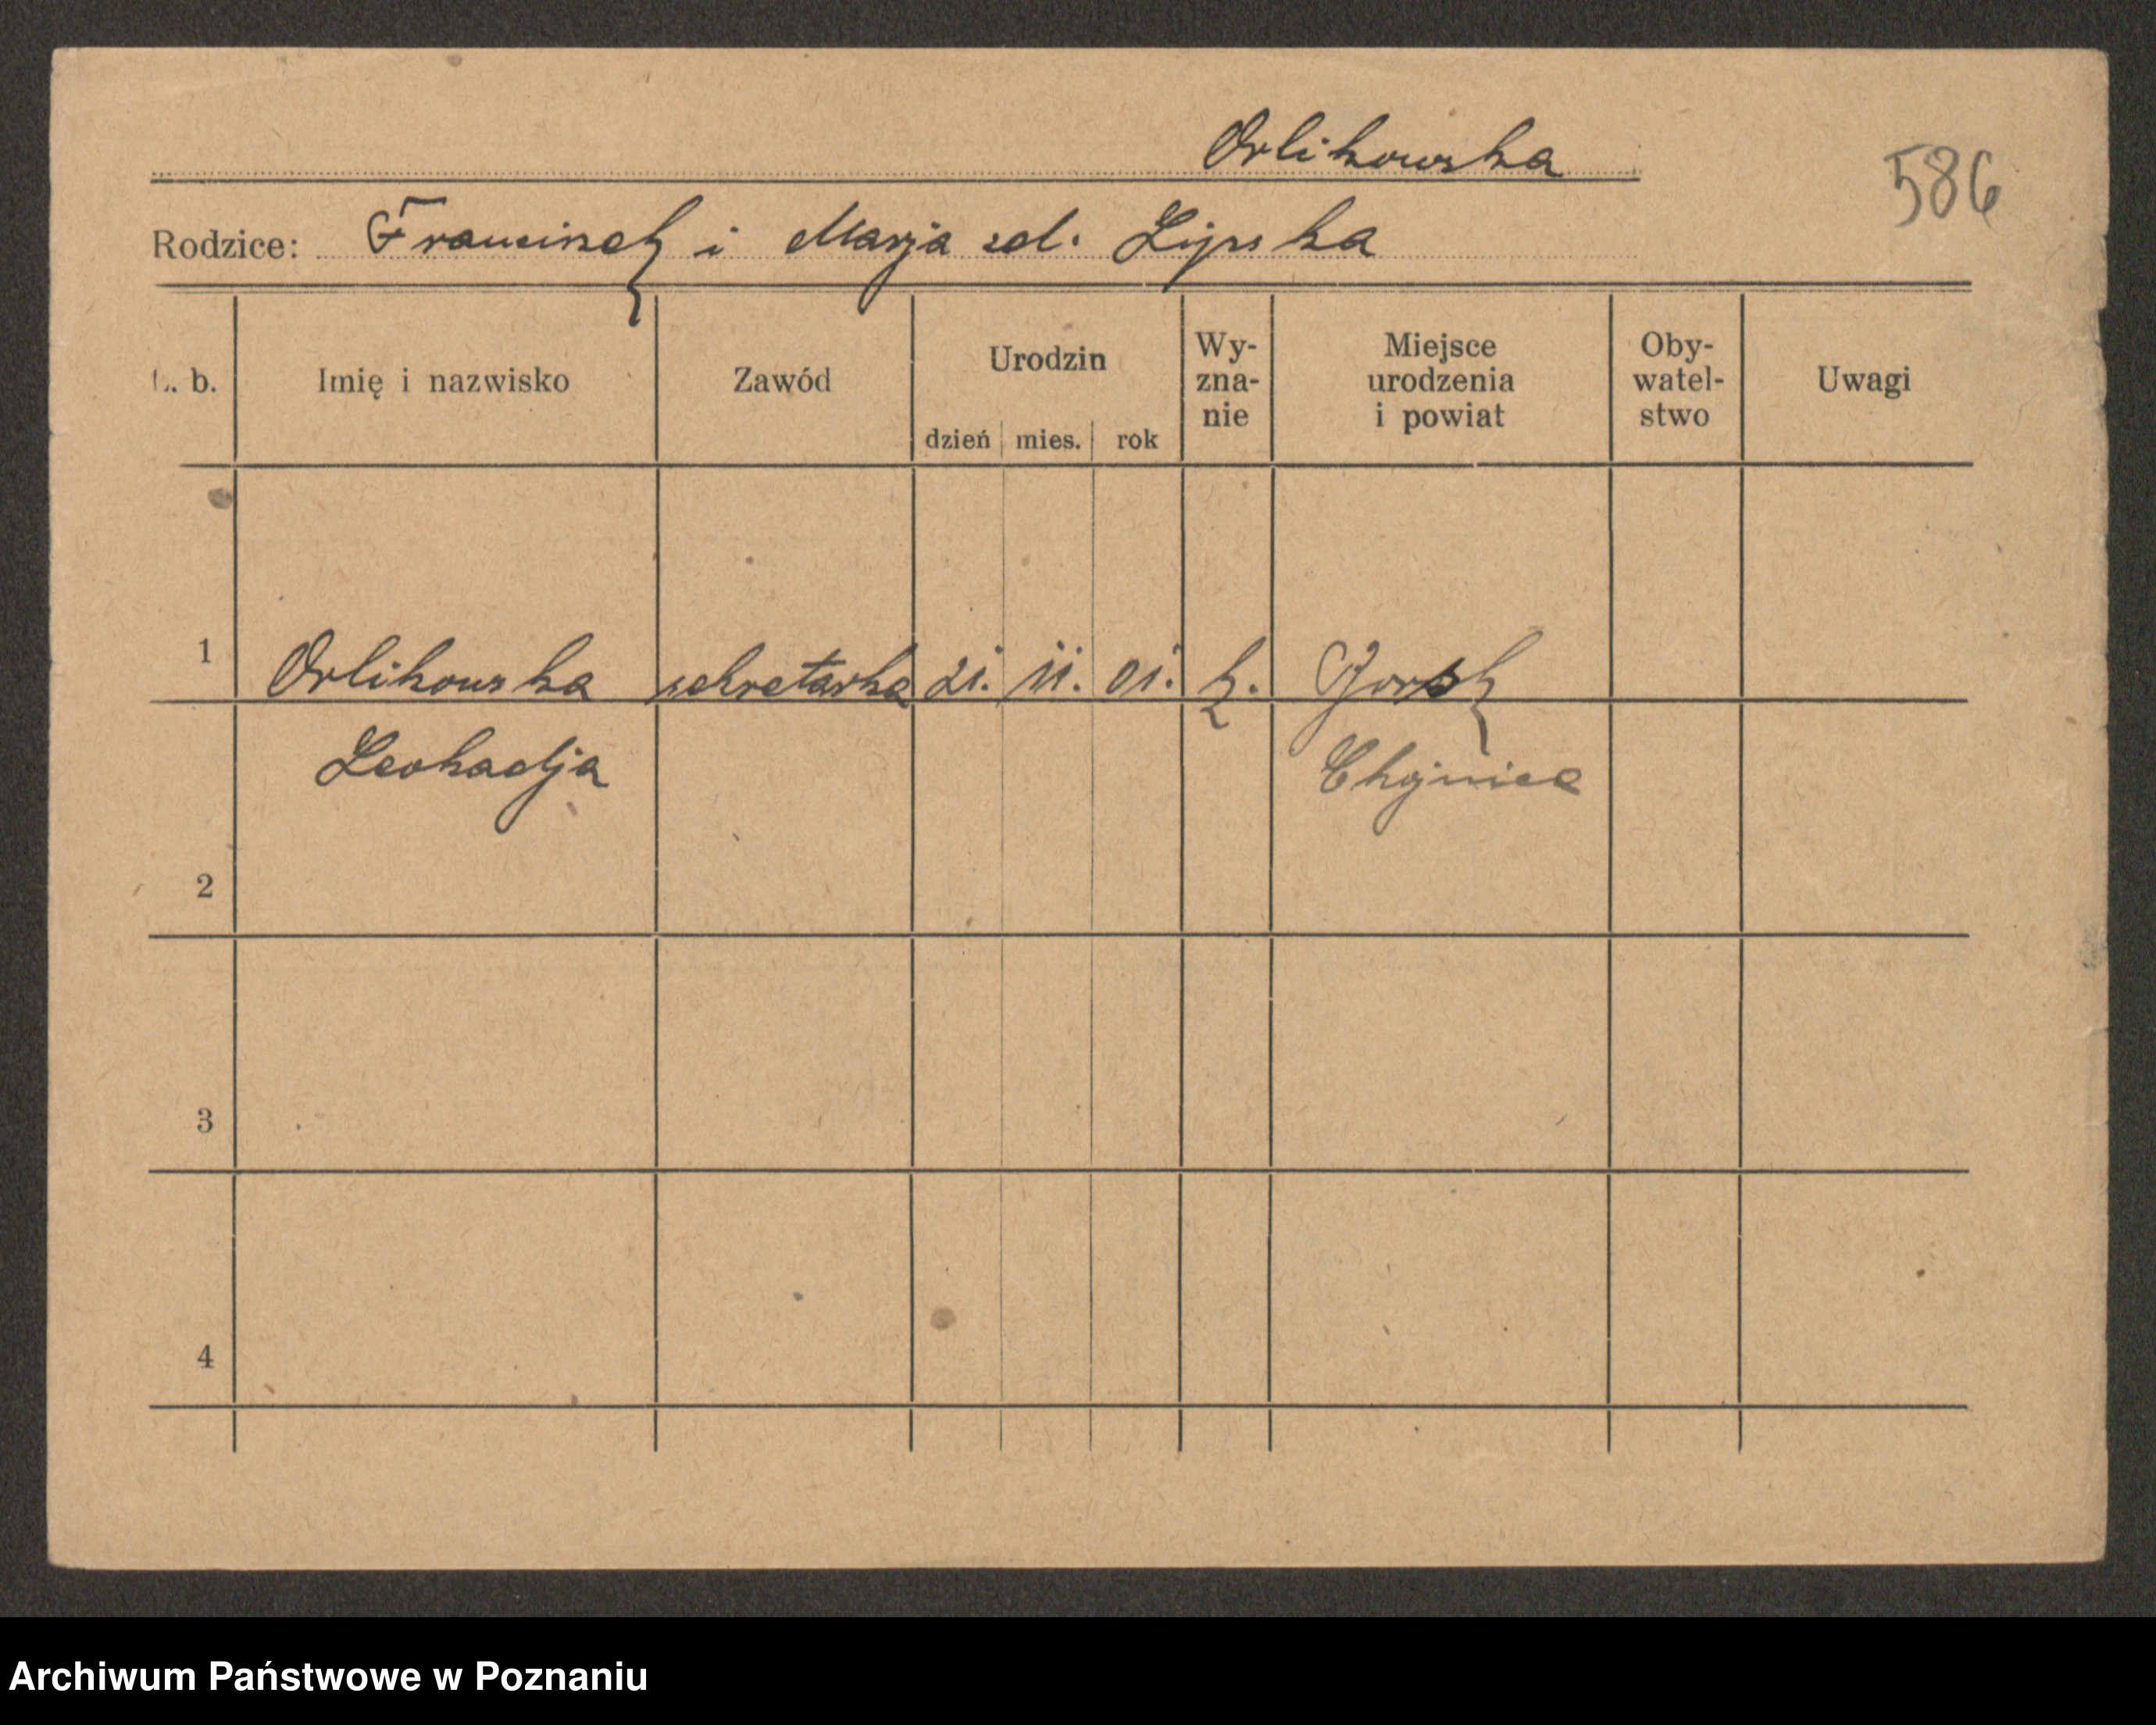 Orlikowska
586
Rodzice: Franciszek i Marja zd. Lipska
L. b. Imię i nazwisko Zawód Urodzin dzień mies. rok Wy-zna-nie Miejsce urodzenia i powiat Oby-watel-stwo Uwagi
1 Orlikowska sekretarka 21. 11. 01. k. Gorsk
Leokadja Chojnice
2
3
4
Archiwum Państwowe w Poznaniu